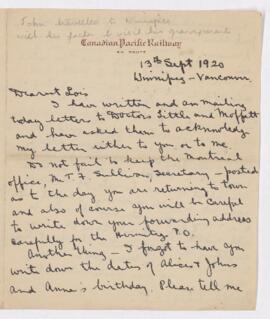 John travelled to Winnipeg
with his father to visit his grandparents
Canadian Pacific Railway
EN ROUTE
13th Sept 1920
Winnipeg - Vancouver
Dearest Lois
I have written and am mailing
today letters to Doctors Little and Moffatt
and have asked them to acknowledge
my letter either to you or to me.
Do not fail to keep the Montreal
office, Mr. T. F. Sullivan, Secretary - posted
as to the day you are returning to town
and also of course you will be careful
to write down your forwarding address
carefully for the P.O.
Another thing - I forgot to have you
write down the dates of Alice's & John's
and Anna's birthday. Please tell me